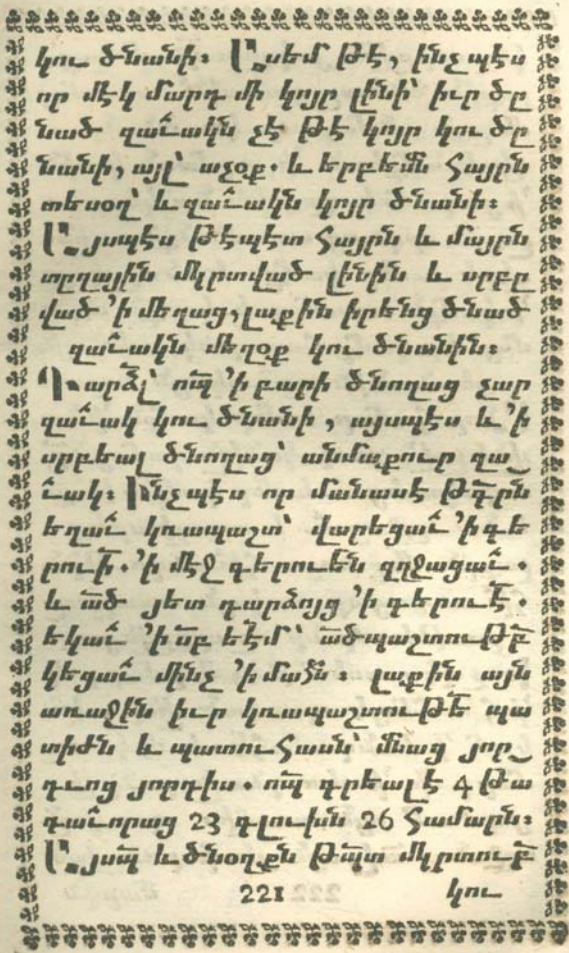 կու ծնանի։ Ասեմ թէ, ինչպէս
որ մէկ մարդ մի կոյր լինի՝ իւր ծը
նած զաւակն չէ թէ կոյր կու ծը
նանի, այլ՝ աչօք. և երբեմն հայրն
տեսօղ՝ և զաւակն կոյր ծնանի։
Այսպէս թէպէտ հայրն և մայրն
տղղային մկրտված լինին և սրբը
ված ՚ի մեղաց, լաքին իրենց ծնած
զաւակն մեղօք կու ծնանին։
Դարձլ՝ ո՞պ ՚ի բարի ծնողաց չար
զաւակ կու ծնանի, այսպէս և ՚ի
սրբեալ ծնողաց՝ անմաքուր զա
ւակ։ Ինչպէս որ մանասէ թգրն
եղաւ կռապաշտ՝ վարեցաւ ՚ի գե
րուի. ՚ի մէջ գերուեն զղջացաւ.
և ած յետ դարձոյց ՚ի գերուէ.
եկաւ ՚ի սբ եէմ՝ ածպաշտուբ
կեցաւ մինչ ՚ի մահն։ լաքին այն
առաջին իւր կռապաշտուե պա
տիժն և պատուհասն՝ մնաց յոր
դւոց յորդիս. ոպ գրեալ է 4 թա
գաւորաց 23 գլուխն 26 համարն։
Այսպ և ծնօղքն թպտ մկրտուբ
221 կու